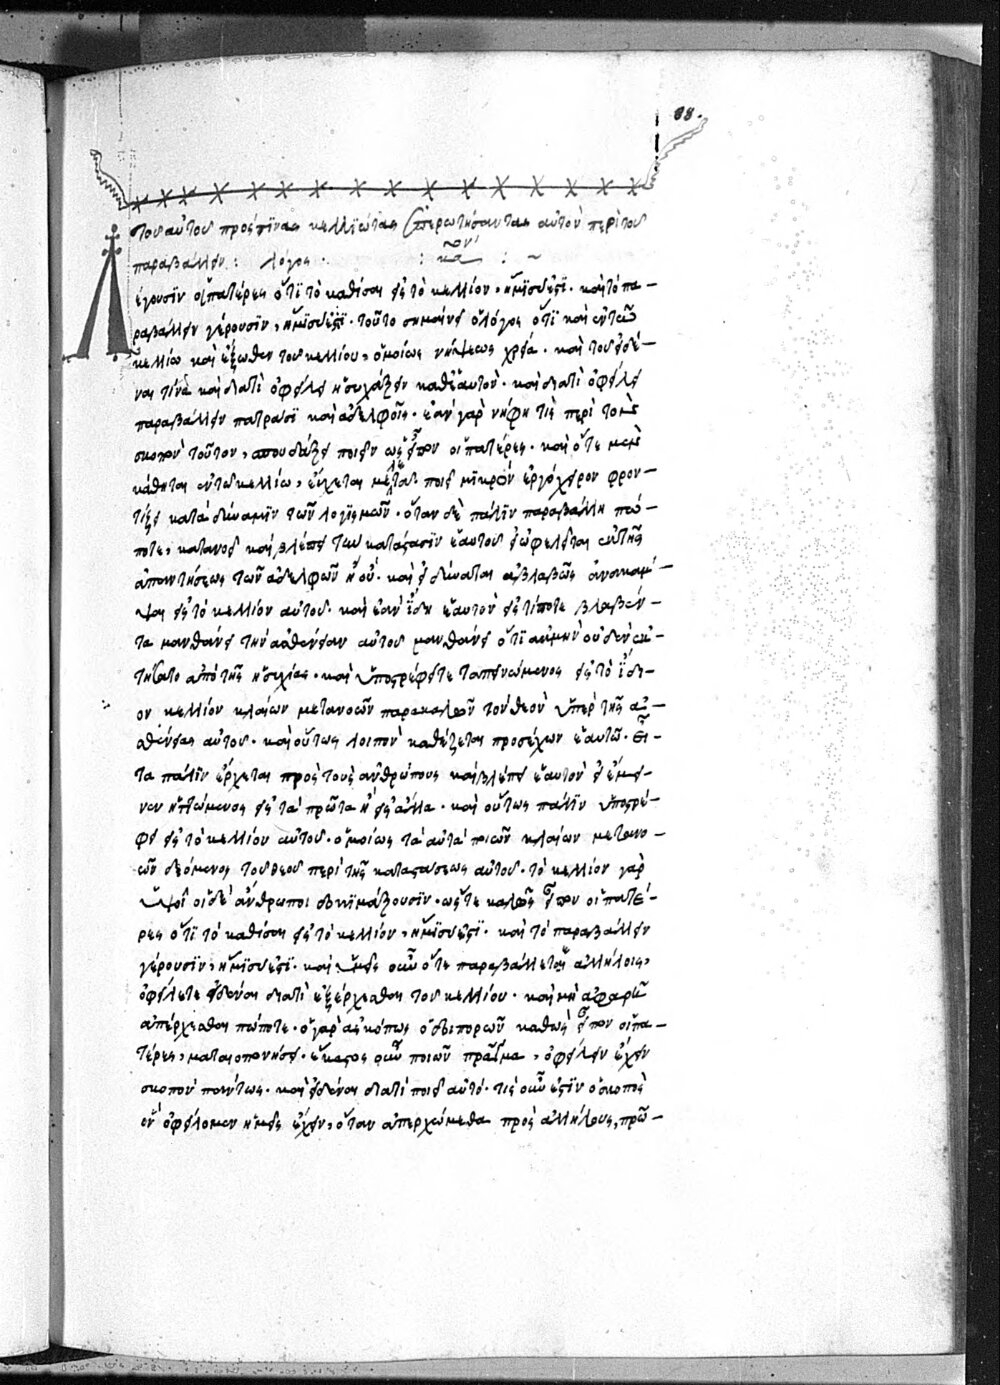 88.
Τοῦ αὐτοῦ πρός τινας κελλιώτας ἐπερωτήσαντας αὐτὸν περὶ τοῦ
παραβάλλειν : λόγος κα :~
Λέγουσιν οἱ πατέρες ὅτι τὸ καθίσαι εἰς τὸ κελλίον, ἥμισύ ἐστι· καὶ τὸ πα–
ραβάλλειν γέρουσιν, ἥμισύ ἐστι· τοῦτο σημαίνει ὁ λόγος ὅτι καὶ ἐν τῶ
κελλίω καὶ ἔξωθεν τοῦ κελλίου, ὁμοίως νήψεως χρεία· καὶ τοῦ εἰδέ–
ναι τινὰ καὶ διατὶ ὀφείλει ἡσυχάζειν καθ' ἑαυτὸν· καὶ διατὶ ὀφείλει
παραβάλλειν πατράσι καὶ ἀδελφοῖς· ἐὰν γὰρ νήφη τις περὶ τὸν
σκοπὸν τοῦτον, σπουδάζει ποιεῖν ὡς εἶπον οἱ πατέρες· καὶ ὅτε μὲν
κάθηται ἐν τῶ κελλίω, εὔχεται μελετᾶ ποιεῖ μικρὸν ἐργόχειρον φρον–
τίζει κατὰ δύναμιν τῶν λογισμῶν· ὅταν δὲ πάλιν παραβάλλη πώ–
ποτε, κατανοεῖ καὶ βλέπει τὴν κατάστασιν ἑαυτοῦ εἰ ὠφελεῖται ἐκ τῆς
ἀπαντήσεως τῶν ἀδελφῶν ἢ οὔ· καὶ εἰ δύναται ἀβλαβῶς ἀνακάμ–
ψαι εἰς τὸ κελλίον αὐτοῦ· καὶ ἐὰν ἴδη ἑαυτὸν εἰς τίποτε βλαβέν–
τα μανθάνει τὴν ἀσθένειαν αὐτοῦ μανθάνει ὅτι ἀκμὴν οὐδὲν ἐκ–
τήσατο ἀπὸ τῆς ἡσυχίας· καὶ ὑποστρέφεται ταπεινώμενος εἰς τὸ ἴδι–
ον κελλίον κλαίων μετανοῶν παρακαλῶν τὸν θεὸν ὑπὲρ τῆς ἀ–
σθενείας αὐτοῦ· καὶ οὕτως λοιπὸν καθέζεται προσέχων ἑαυτῶ· Εἶ–
τα πάλιν ἔρχεται πρὸς τοὺς ἀνθρώπους καὶ βλέπει ἑαυτὸν εἰ ἐμει–
νεν ἡττώμενος εἰς τὰ πρῶτα ἢ εἰς ἄλλα· καὶ οὕτως πάλιν ὑποστρέ–
φει εἰς τὸ κελλίον αὐτοῦ· ὁμοίως τὰ αὐτὰ ποιῶν κλαίων μετανο–
ῶν δεόμενος τοῦ θεοῦ περὶ τῆς καταστάσεως αὐτοῦ· τὸ κελλίον γὰρ
ὑψοῖ οἱ δὲ ἄνθρωποι δοκιμάζουσιν· ὥστε καλῶς εἶπον οἱ πατέ–
ρες ὅτι τὸ καθίσαι εἰς τὸ κελλίον, ἥμισύ ἐστι· καὶ τὸ παραβάλλειν
γέρουσιν, ἥμισύ ἐστι· καὶ ὑμεῖς οὖν ὅτε παραβάλλετε ἀλλήλοις,
ὀφείλετε εἰδέναι διατὶ ἐξέρχεσθαι τοῦ κελλίου· καὶ μὴ
ἀπέρχεσθαι πώποτε· ὁ γὰρ ἀσκόπως ὁδοιπορῶν καθὼς εἶπον οἱ πα–
τέρες, ματαιοπονήσει· ἕκαστος οὖν ποιῶν πρᾶγμα, ὀφείλειν ἔχειν
σκοπὸν πάντως· καὶ εἰδέναι διατὶ ποιεῖ αὐτό· τίς οὖν ἐστὶν ὁ σκοπὸς
ὃν ὀφείλομεν ἡμεῖς ἔχειν, ὅταν ἀπερχώμεθα πρὸς ἀλλήλους, πρῶ–